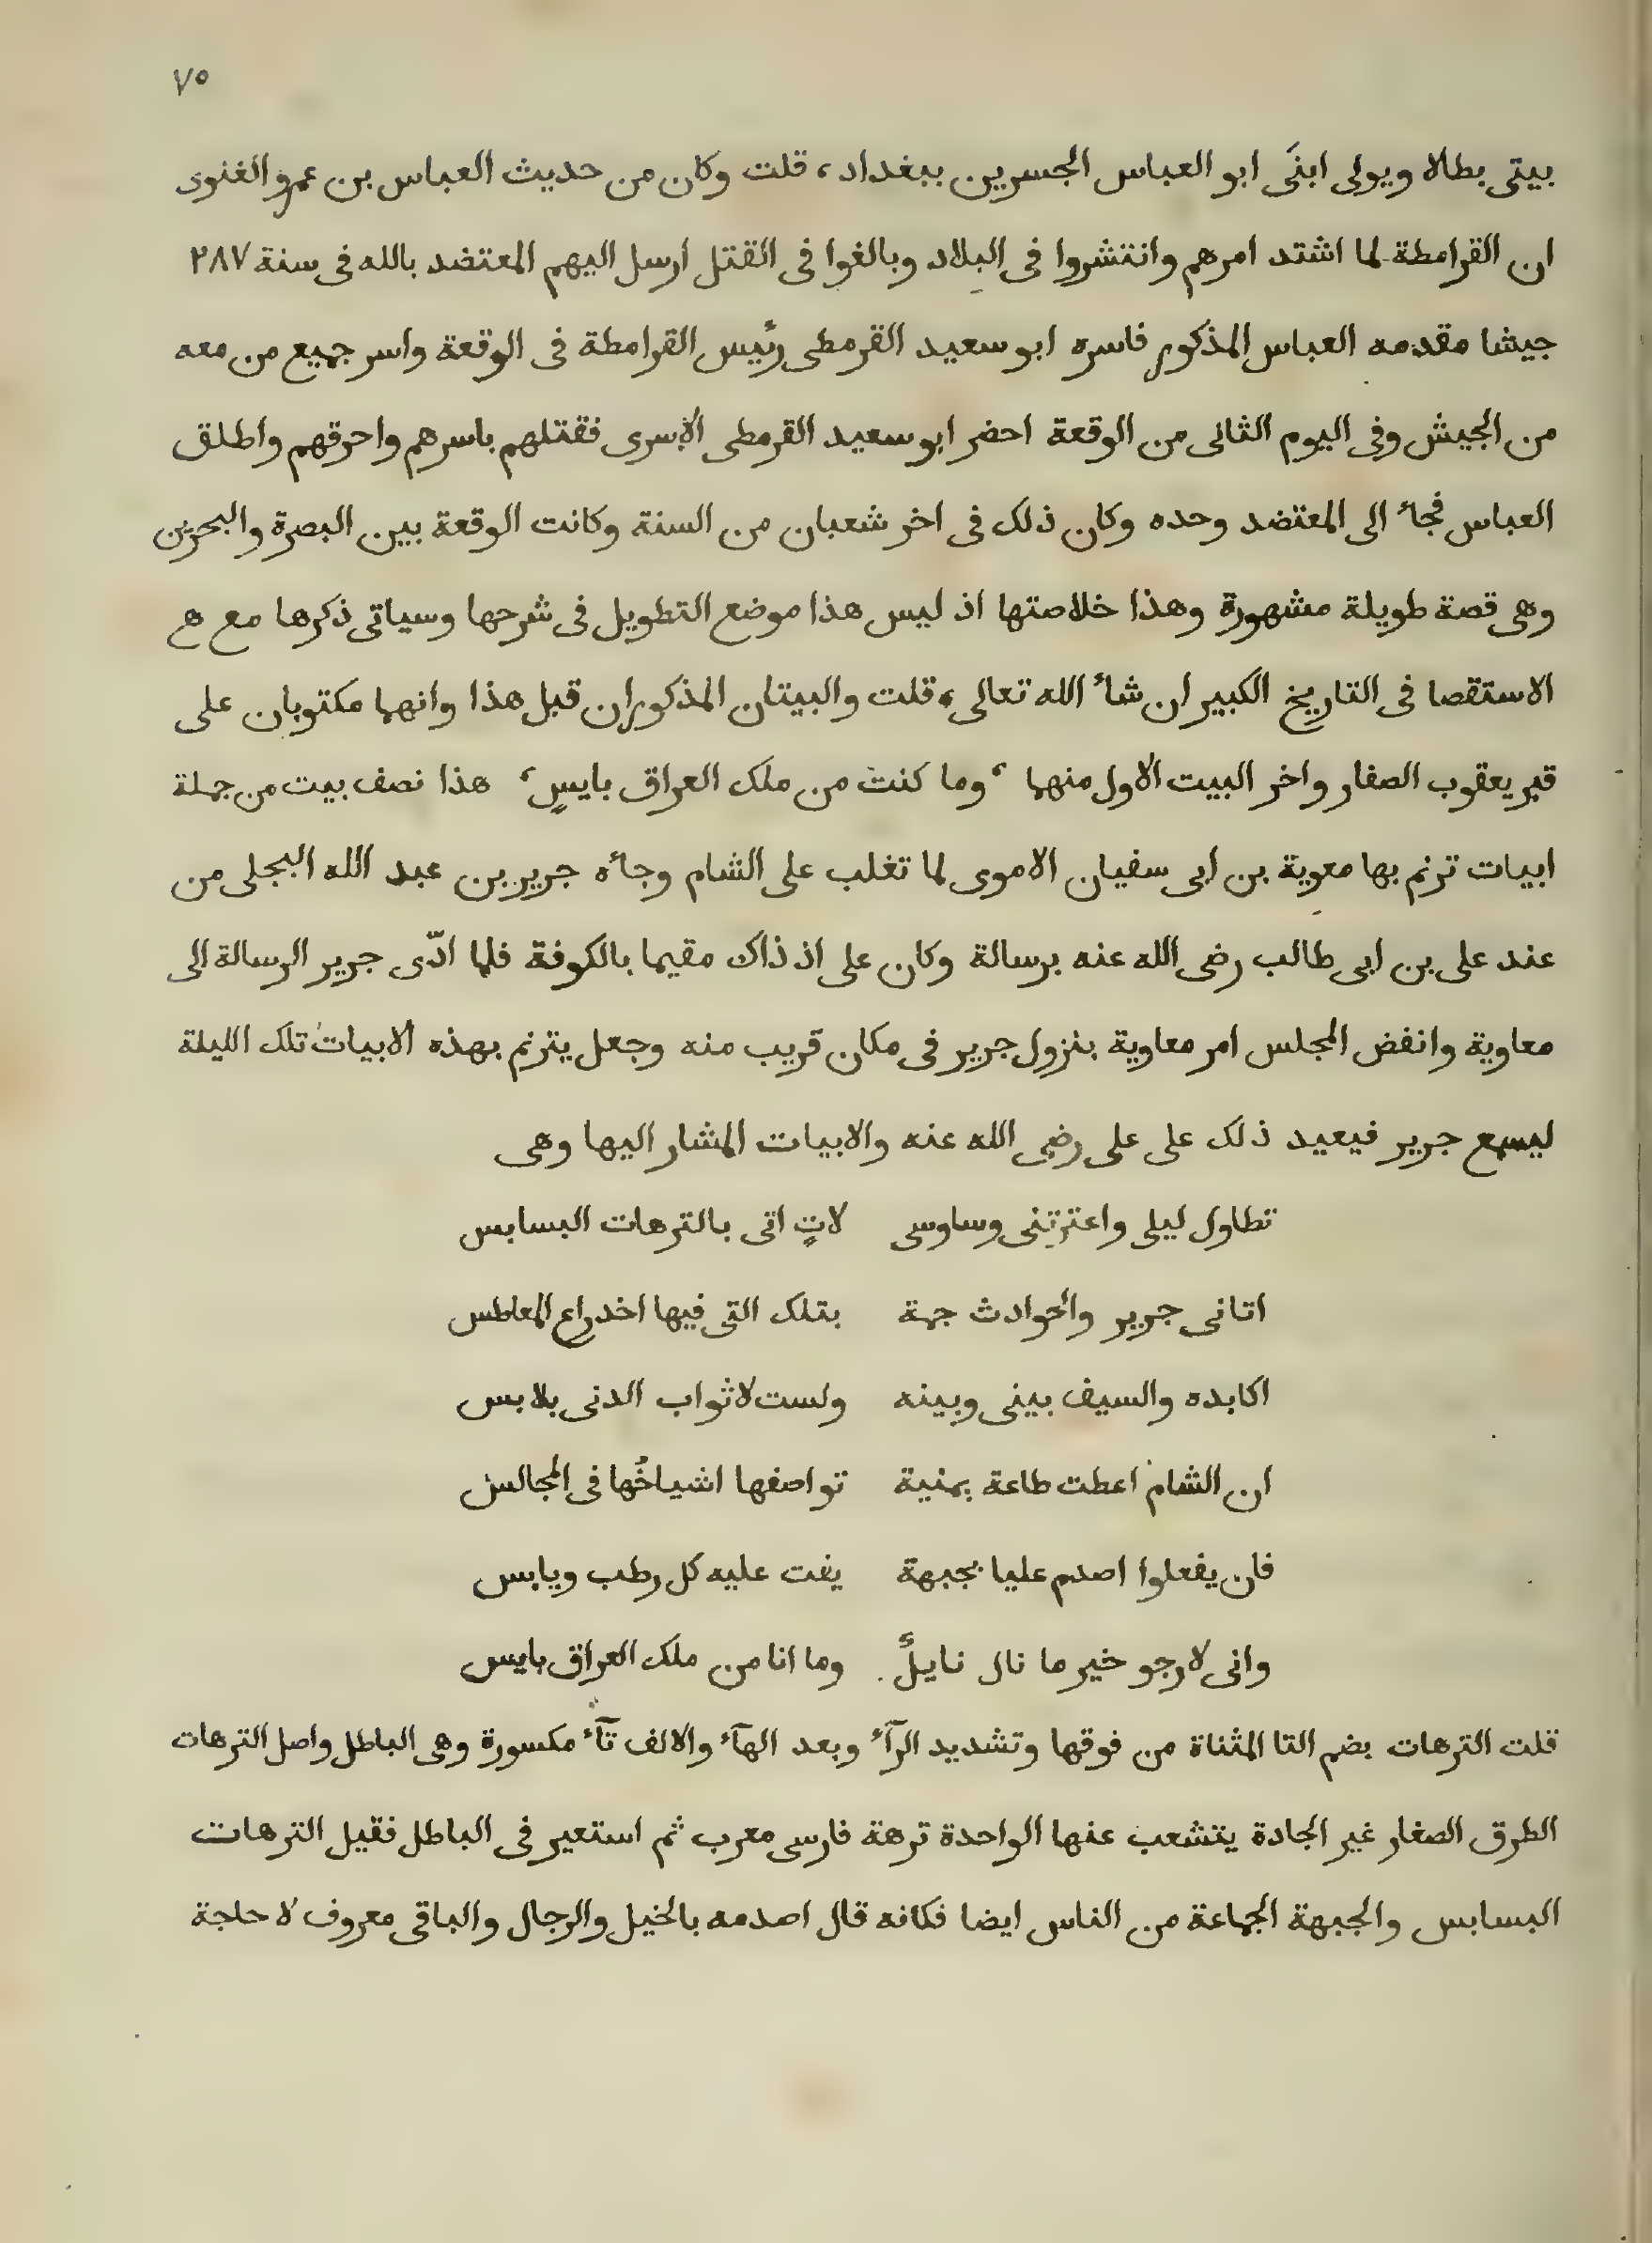 ٧٥
بيتى بطالا ويولى ابنَى ابو العباس الجسرين ببغداد، قلت وكان من حديث العباس بن عمرو الغنوى
ان القرامطة لما اشتد امرهم وانتشروا فى البلاد وبالغوا فى القتل ارسل اليهم المعتضد بالله فى سنة ٢٨٧
جيشا مقدمه العباس المذكور فاسره ابو سعيد القرمطى رئيس القرامطة فى الوقعة واسر جميع من معه
من الجيش وفى اليوم الثانى من الوقعة احضر ابو سعيد القرمطى الاسرى فقتلهم باسرهم واحرقهم واطلق
العباس فجاء الى المعتضد وحده وكان ذلك فى اخر شعبان من السنة وكانت الوقعة بين البصرة والبحرين
وهى قصة طويلة مشهورة وهذا خلاصتها اذ ليس هذا موضع التطويل فى شرحها وسياتى ذكرها مع هع
الاستقصا فى التاريخ الكبير ان شاء الله تعالى، قلت والبيتان المذكوران قبل هذا وانهما مكتوبان على
قبر يعقوب الصفار واخر البيت الاول منهما ، وما كنت من ملك العراق بايسٍ، هذا نصف بيت من جملة
ابيات ترنم بها معوية بن ابى سفيان الاموى لما تغلب على الشام وجاءه جرير بن عبد الله البجلى من
عند على بن ابى طالب رضى الله عنه برسالة وكان على اذ ذاك مقيما بالكوفة فلما ادّى جرير الرسالة الى
معاوية وانفض المجلس امر معاوية بنزول جرير فى مكان قريب منه وجعل يترنم بهذه الابيات تلك الليلة
ليسمع جرير فيعيد ذلك على على رضى الله عنه والابيات المشار اليها وهى
تطاول ليلى واعترتنى وساوسى لاتٍ اتى بالترهات البسابس
اتانى جرير والحوادث جمة بتلك التى فيها اخدراع المعاطس
اكابده والسيف بينى وبينه ولست لاثواب الدنى بلابس
ان الشام اعطت طاعة يمنية تواصفها اشياخُها فى المجالس
فان يفعلوا اصدم عليا بجبهة يفت عليه كل رطب ويابس
وانى لارجو خير ما نال نايلٌ وما انا من ملك العراق بايس
قلت الترهات بضم التا المثناة من فوقها وتشديد الرآء وبعد الهآء والالف تآء مكسورة وهى الباطل واصل الترهات
الطرق الصغار غير الجادة يتشعب عنها الواحدة ترهة فارسى معرب ثم استعير فى الباطل فقيل الترهات
البسابس والجبهة الجماعة من الناس ايضا فكانه قال اصدمه بالخيل والرجال والباقى معروف لا حاجة